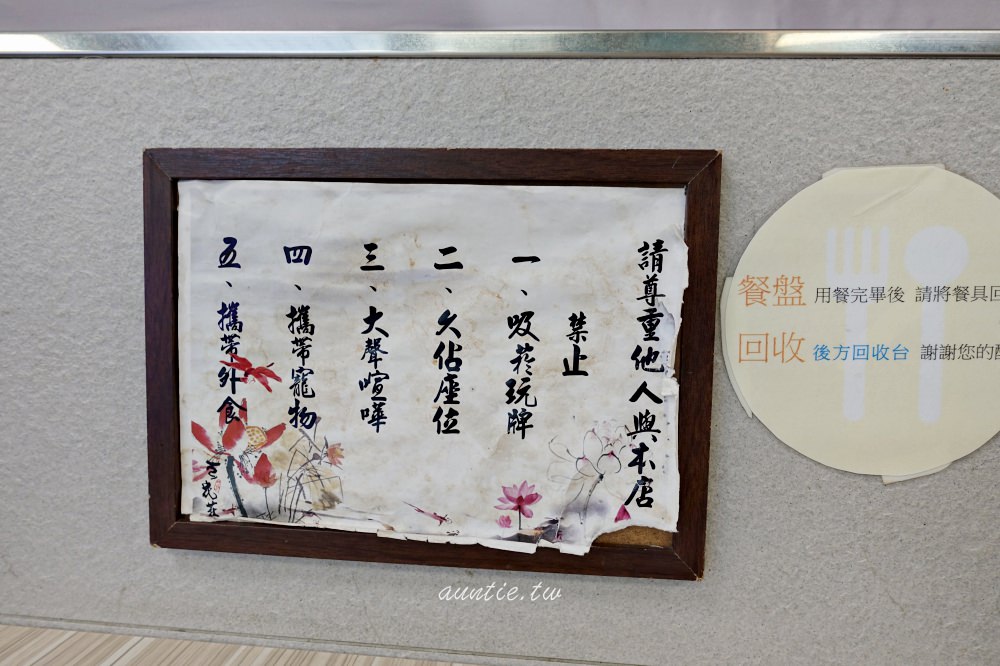 請尊重他人與本店
禁止
一、吸菸玩牌
二、久佔座位
三、大聲喧嘩
四、攜帶寵物
五、攜帶外食
餐盤 用餐完畢後 請將餐具回
回收 後方回收台 謝謝您的
auntie.tw